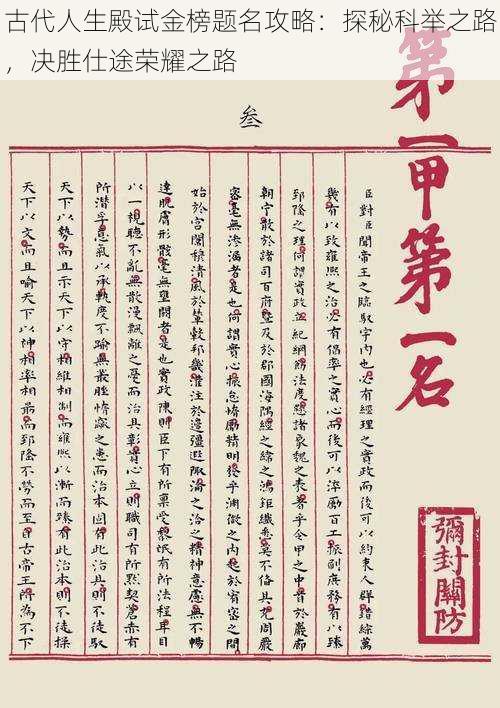 古代人生殿试金榜题名攻略：探秘科举之路
，决胜仕途荣耀之路
叁
第一甲第一名
彌封關防
臣對臣聞帝王之臨馭宇内也必有經理之實政而後可以約束人群錯綜萬
幾有以致雍熙之治必有倡率之實心而後可以淬勵百工振刷庶務有以臻
郅隆之理何謂實政立紀綱飭法度懸諸象魏之表著乎令甲之中首於巖廊
朝宁散於諸司百府暨及於郡國海隅經之緯之鴻鉅纖悉莫不備具充周嚴
密毫無滲漏者是也何謂實心振怠惰勵精明發乎淵微之内起於宥密之間
始於宮闈穆清風於輦轂邦畿灌注於邊疆遐陬淪之洽之精神意慮無不暢
達肌膚形骸毫無壅閼者是也實政陳則臣下有所稟受黎氓有所法程耳目
以一視聽不亂無散漫飄離之憂而治具彰實心立則職司有所默契蒼赤有
所潛孚意氣以承軌度不踰無叢脞惰窳之患而治本固有此治具則不徒馭
天下以勢而且示天下以守相維相制而雍熙以漸而臻有此治本則不徒操
天下以文而且喻天下以神相率相勗而郅隆不勞而至自古帝王所為不下